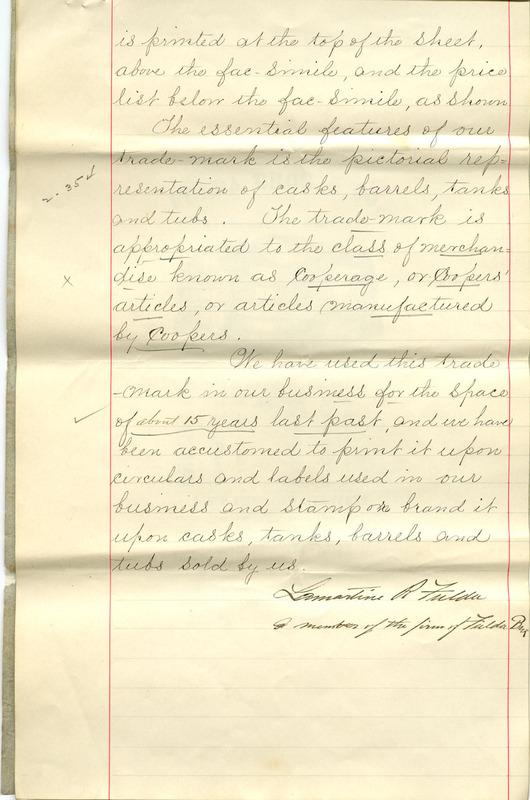 is printed at the top of the sheet,
above the fac-simile, and the price
list below the fac-simile, as shown
The essential features of our
trade-mark is the pictorial rep-
resentation of casks, barrels, tanks
and tubs. The trade-mark is
appropriated to the class of merchan-
dise known as Cooperage, or Coopers'
articles, or articles manufactured
by Coopers.
We have used this trade
-mark in our business for the space
of about 15 years last past, and we have
been accustomed to print it upon
circulars and labels used in our
business and stamp or brand it
upon casks, tanks, barrels and
tubs sold by us.
Lamartine R Fulda
a member of the firm of Fulda Bros
x